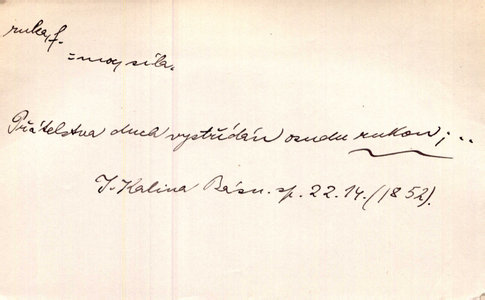 ruka, f.
= moc, síla.
Přátelstva duch vystřídán osudu rukou; ..
J. Kalina Básn. sp. 22.14. (1852).